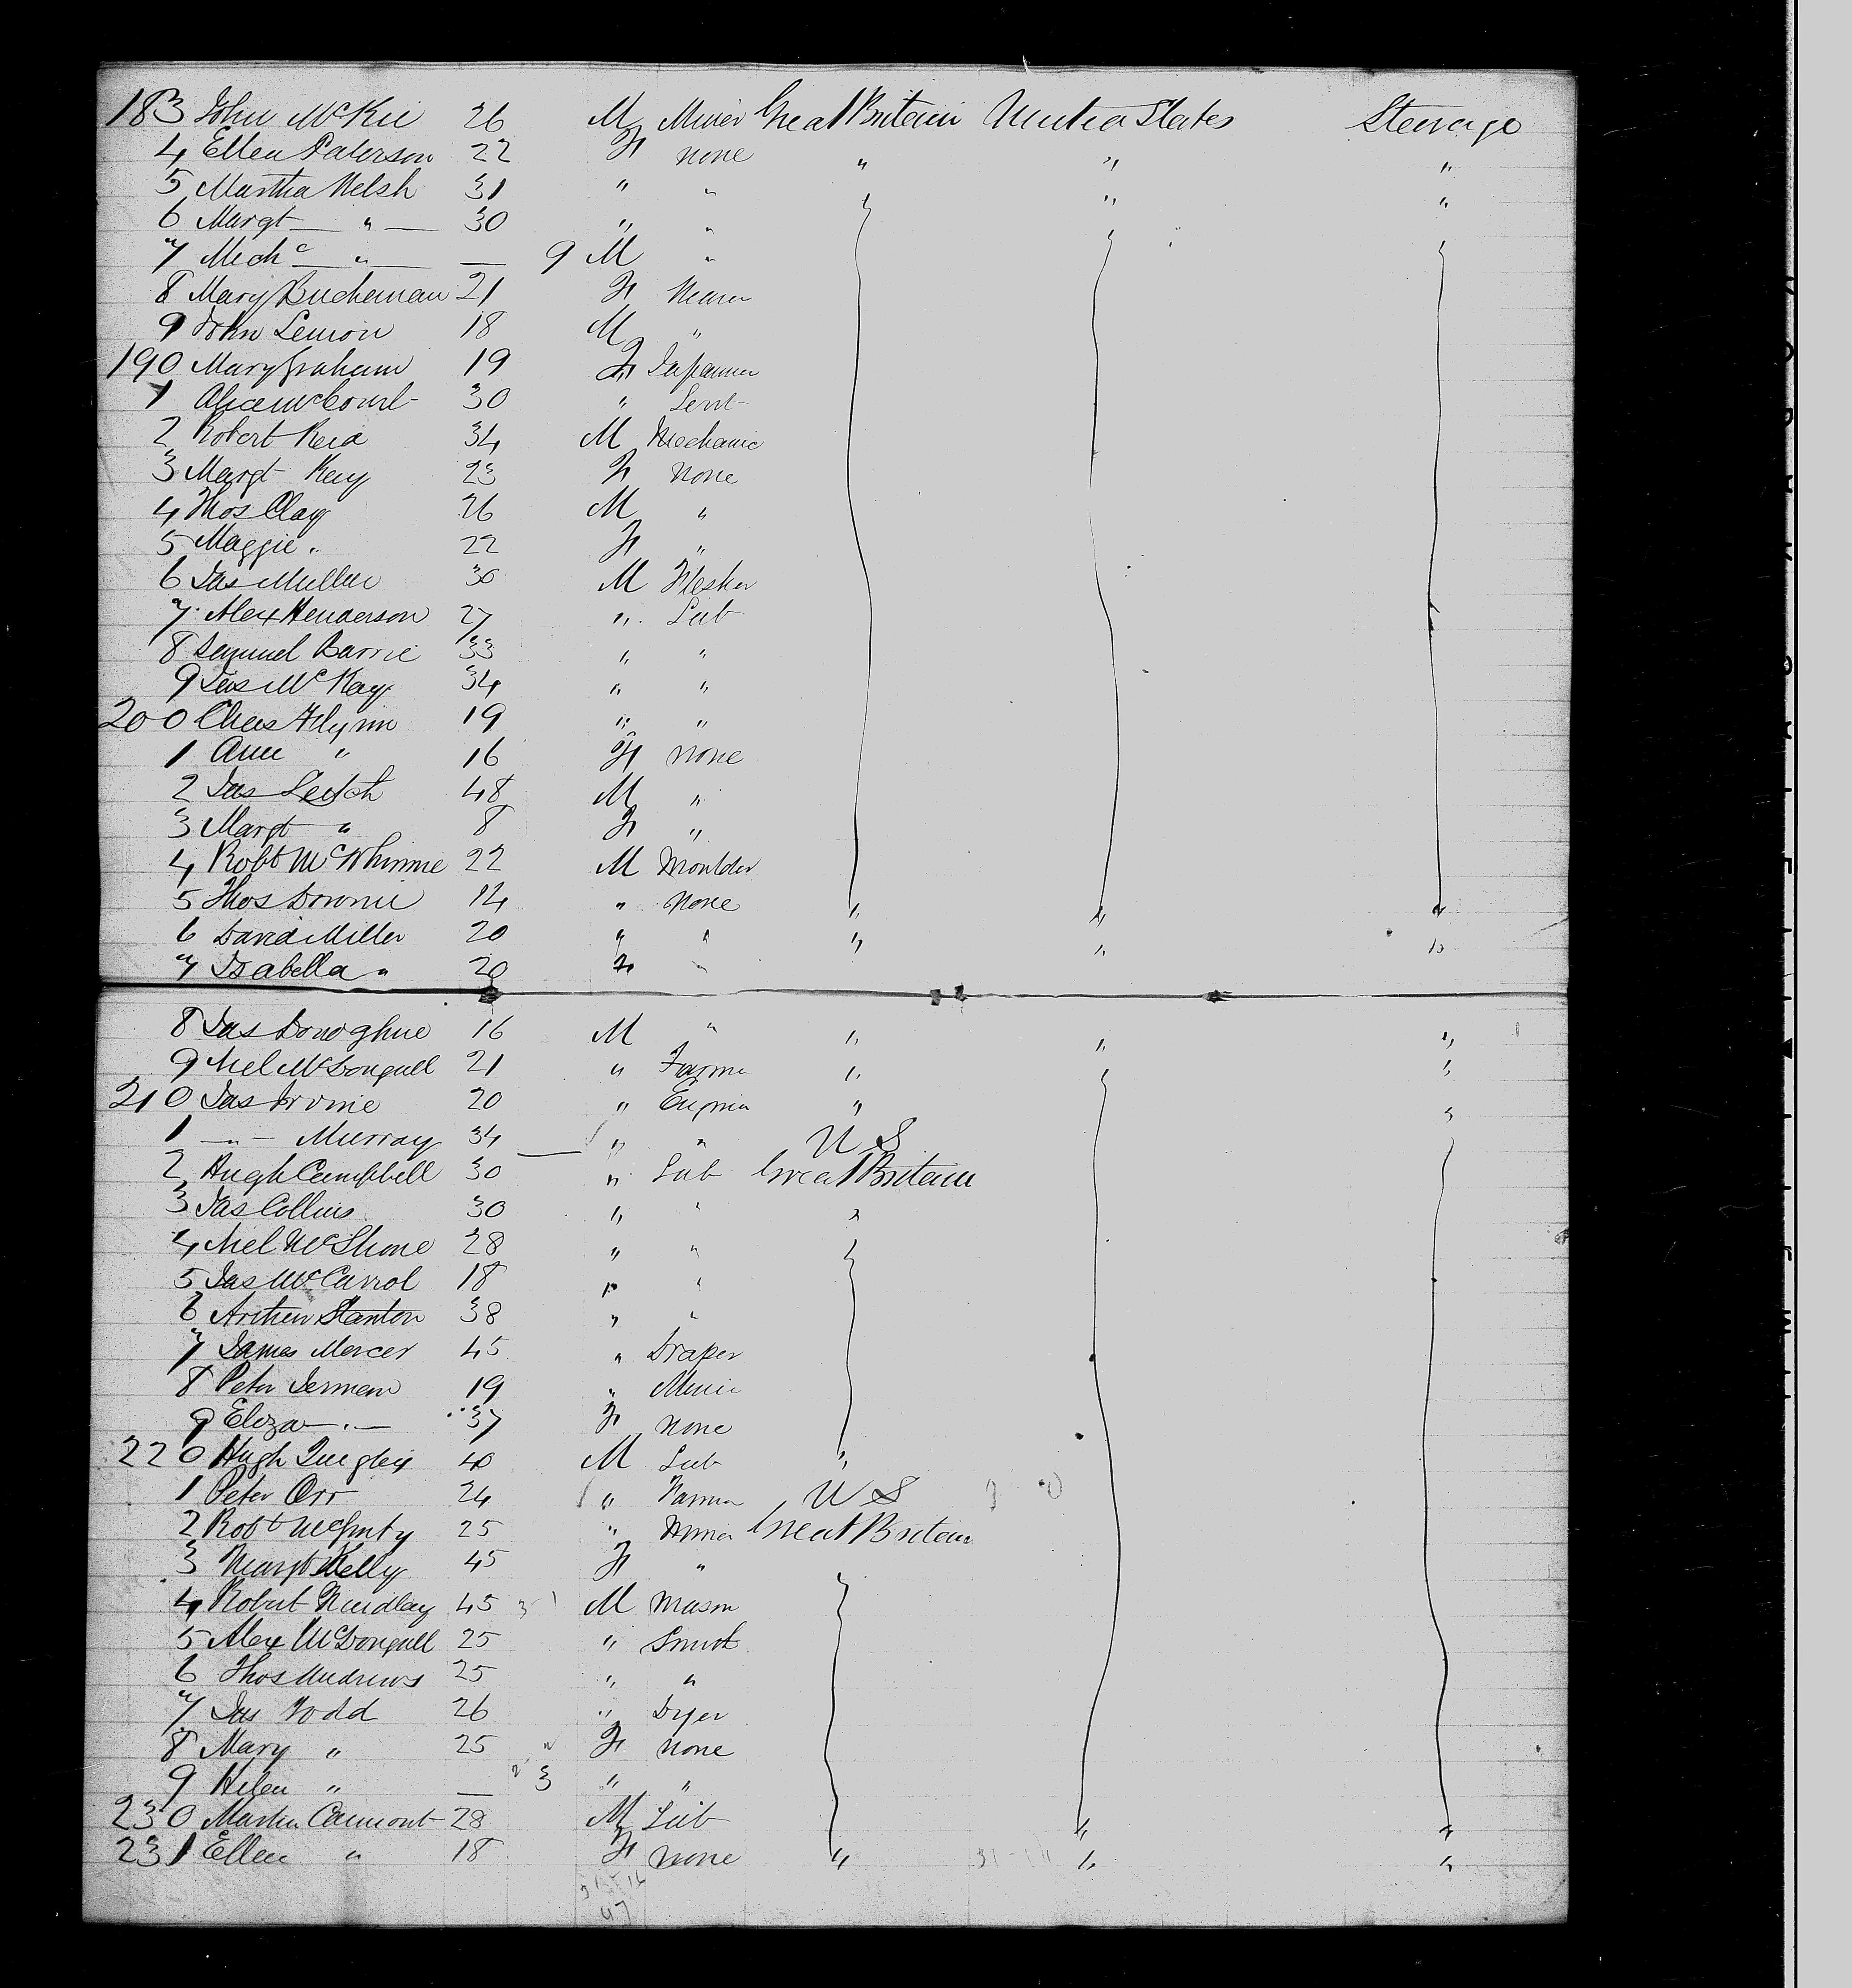 183 John McKie 26 M Miner Great Britain United States Steerage
4 Ellen Paterson 22 F none " " "
5 Martha Welsh 31 " " " "
6 Margt — " — 30 " "
7 Mich — " — — 9 M "
8 Mary Buchanan 21 F Weaver
9 John Lemon 18 M "
190 Mary Graham 19 F Japanner
1 Alice McCourt 30 " Servt
2 Robert Reid 34 M Mechanic
3 Margt Kay 23 F none
4 Thos Clay 26 M "
5 Maggie " 22 F "
6 Jas Mullen 30 M Flesher
7 Alex Henderson 27 " Lab
8 Samuel Barrie 33 " "
9 Jas McKay 34 " "
200 Chas Flynn 19 " "
1 Ann " 16 F none
2 Jas Leitch 48 M "
3 Margt " 8 F "
4 Robt McWhinnie 22 M Moulder
5 Thos Downie 14 " none " " "
6 David Miller 20 " " " " "
7 Isabella " 20 F "
8 Jas Donoghue 16 M " " " "
9 Neil McDougall 21 " Farmer " "
210 Jas Irvine 20 " Engineer " "
1 — " — Murray 34 " " U S
2 Hugh Campbell 30 " Lab Great Britain
3 Jas Collins 30 " " "
4 Neil McShane 28 " "
5 Jas McCarrol 18 " "
6 Arthur Stanton 38 " "
7 James Mercer 45 " Draper
8 Peter 19 " Miner
9 Eliza — " — 37 F none
220 Hugh Quigley 40 M Lab "
1 Peter Orr 24 " Farmer U S
2 Robt McGinty 25 " Great Britain
3 Margt Kelly 45 F "
4 Robert Findlay 45 M Mason
5 Alex McDougall 25 " Smith
6 Thos Andrews 25 " "
7 Jas Todd 26 " Dyer
8 Mary " 25 F none
9 Helen " — 3 " "
230 Martin 28 M Lab " "
231 Ellen " 18 F none " " "